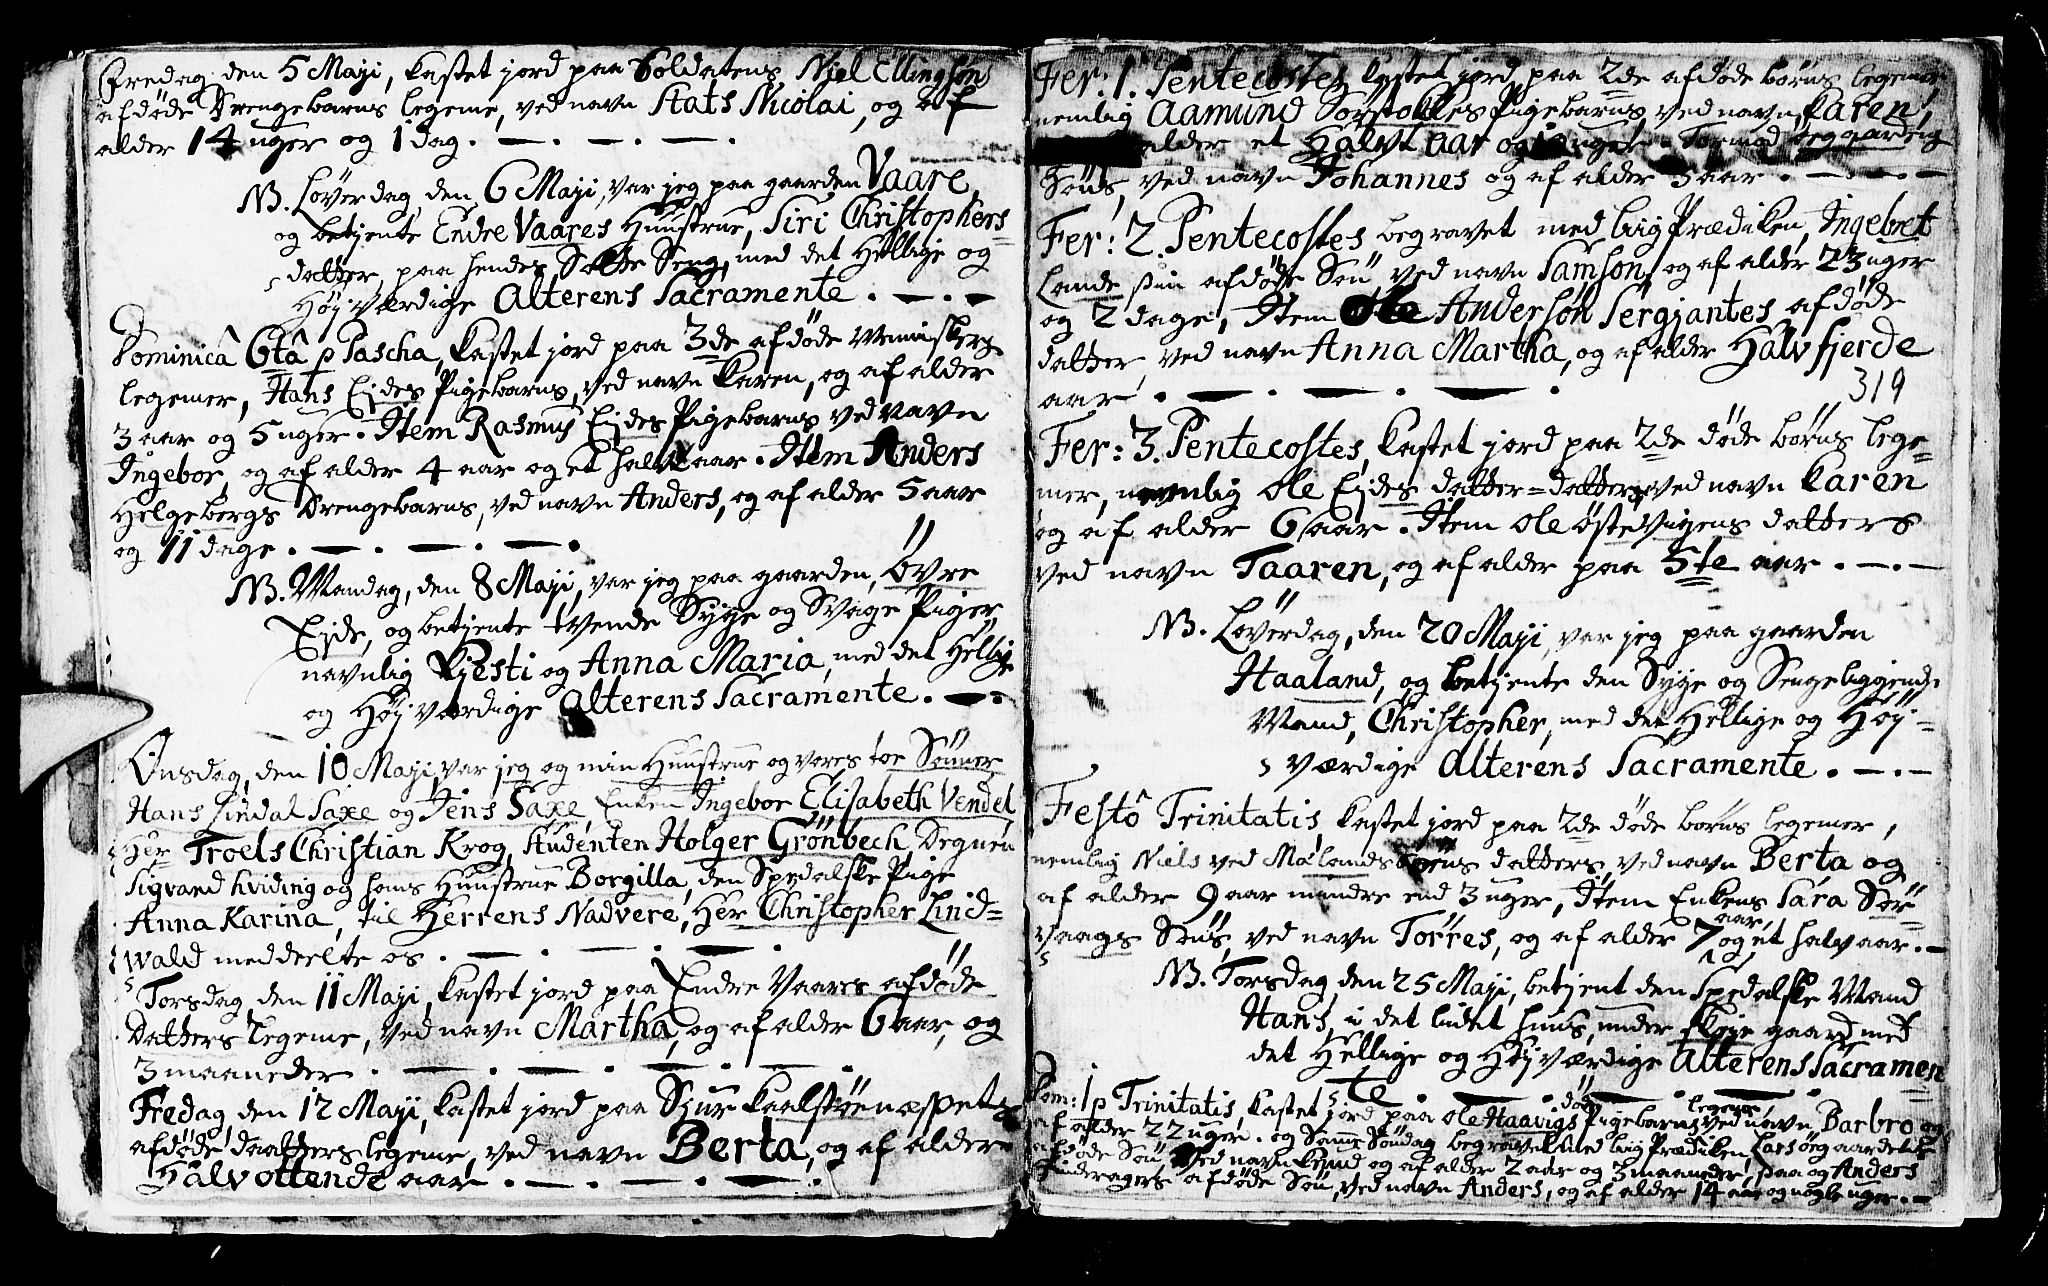 Fredag den 5 Maji, kastet jord paa Soldatens Niel Ellingsøns
afdøde Drengebarns legeme, ved navn Stats Nicolai, og af
alder 14 uger og 1 dag.
NB. Løverdag, den 6 Maji, var jeg paa gaarden Vaare,
og betjente Endre Vaares Huustrue, Siri Christophers-
datter, paa hendes Sotte Seng, med det Hellige og
Høj værdige Alterens Sacramente.
Dominicâ 6tâ p Pascha, kastet jord paa 3de afdøde Menniskers
legemer, Hans Ejdes Pigebarns, ved navn Karen, og af alder
3 aar og 5 uger. Item Rasmus Ejdes Pigebarns ved navn
Ingebor, og af alder 4 aar og et halvt aar. Item Anders
Helgebergs Drengebarns, ved navn Anders, og af alder 5 aar
og 11 dage.
NB. Mandag, den 8 Maji, var jeg paa gaarden, Øvre
Ejde, og betjente tvende Syge og Svage Piger,
navnlig Kjesti og Anna Maria, med det Hellige
og Høj værdige Alterens Sacramente.
Onsdag, den 10 Maji, var jeg og min Huustrue og vores toe Sønner
Hans Lindal Saxe og Jens Saxe, Enken Ingebor Elisabeth Vendel
Her Troels Christian Krog, Studenten Holger Grønbech, Degnen
Sigvard Hviding og hans Huustrue Borgilla, den Spedalske Pige
Anna Karina, til Herrens Nadvere, Her Christopher Lind=
wald meddeelte os.
Torsdag den 11 Maji, kastet jord paa Endre Vaares afdøde
Datters legeme, ved navn Martha, og af alder 6 aar, og
3 maaneder.
Fredag, den 12 Maji, kastet jord paa Sjur
afdøde daatters legeme, ved navn Berta, og af alder
Halv ottende aar.
Fer: 1. Pentecostes, kastet jord paa 2de afdøde børns legemer,
nemlig Aamund Pigebarns, ved navn, Karen,
alder et Halvt aar og uger. Tormod
Søns, ved navn Johannes og af alder 5 aar.
Fer: 2. Pentecostes begravet med liig Prædiken, Ingebret
Lande sin afdøde Søn ved navn Samson, og af alder 23 uger
og 2 dage, Item Ole Andersøn Sergjantes afdøde
datter, ved navn Anna Martha, og af alder Halv fjerde
aar.
319
Fer: 3. Pentecostes, kastet jord paa 2de døde børns lege=
mer, nemlig Ole Ejdes datter=datters, ved navn Karen
og af alder 6 aar. Item Ole Østevigens datters
ved navn Taaren, og af alder paa 5te aar.
NB. Løverdag, den 20 Maji, var jeg paa gaarden
Haaland, og betjente den Syge og Sengeliggende
Mand, Christopher, med det Hellige og Høj=
værdige Alterens Sacramente.
Festô Trinitatis, kastet jord paa 2de døde børns legemer,
nemlig Niels ved datters, ved navn Berta og
af alder 9 aar mindre end 3 uger, Item Enkens Sara Sør=
vaags Søns, ved navn Törres, og af alder 7 aar og et halv aar.
NB. Torsdag, den 25 Maji, betjent den Spedalske Mand
Hans, i det lidet huus, under gaard med
det Hellige og Høj værdige Alterens Sacramen
te.
Dom: 1 p Trinitatis, kastet jord paa Ole Haavigs døde Pigebarns legeme, ved navn, Barbro og
af alder 22 uger. og Samme Søndag begravet, med liig Prædiken Lars
afdøde Søn, ved navn Knud og af alder 2 aar og 3 maaneder, saa og Anders
afdøde Søn, ved navn Anders, og af alder 14 aar og nogle uger.